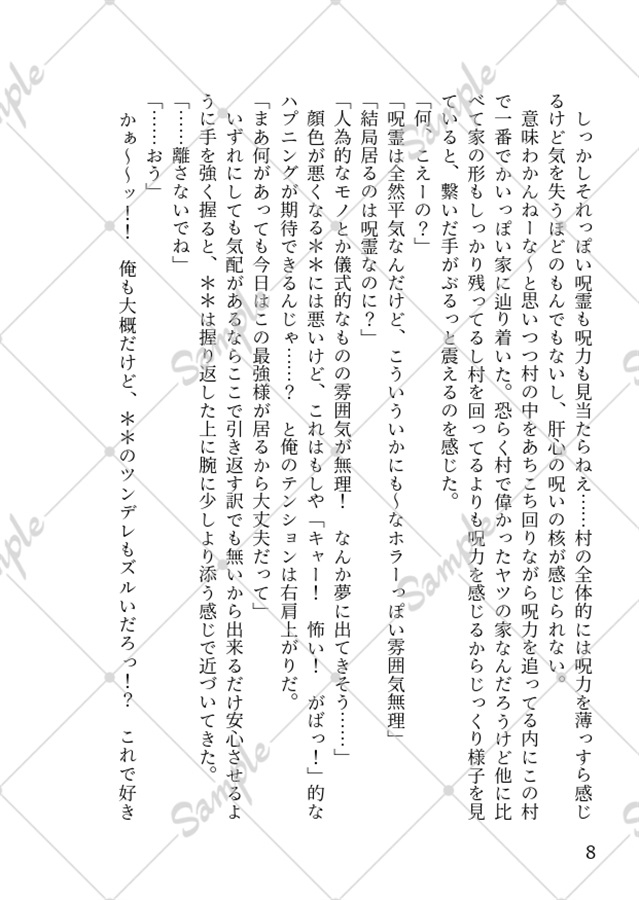 しっかしそれっぽい呪霊も呪力も見当たらねえ……村の全体的には呪力を薄っすら感じ
るけど気を失うほどのもんでもないし、肝心の呪いの核が感じられない。
意味わかんねーな～と思いつつ村の中をあちこち回りながら呪力を追ってる内にこの村
で一番でかいっぽい家に辿り着いた。恐らく村で偉かったヤツの家なんだろうけど他に比
べて家の形もしっかり残ってるし村を回ってるよりも呪力を感じるからじっくり様子を見
ていると、繋いだ手がぶるっと震えるのを感じた。
「何、こえーの？」
「呪霊は全然平気なんだけど、こういういかにも～なホラーっぽい雰囲気無理」
「結局居るのは呪霊なのに？」
「人為的なモノとか儀式的なものの雰囲気が無理！　なんか夢に出てきそう……」
顔色が悪くなる＊＊には悪いけど、これはもしや「キャー！　怖い！　がばっ！」的な
ハプニングが期待できるんじゃ……？　と俺のテンションは右肩上がりだ。
「まあ何があっても今日はこの最強様が居るから大丈夫だって」
いずれにしても気配があるならここで引き返す訳でも無いから出来るだけ安心させるよ
うに手を強く握ると、＊＊は握り返した上に腕に少しより添う感じで近づいてきた。
「……離さないでね」
「……おう」
かぁ～～ッ！！　俺も大概だけど、＊＊のツンデレもズルいだろっ！？　これで好き
8
Sample
Sample
Sample
Sample
Sample
Sample